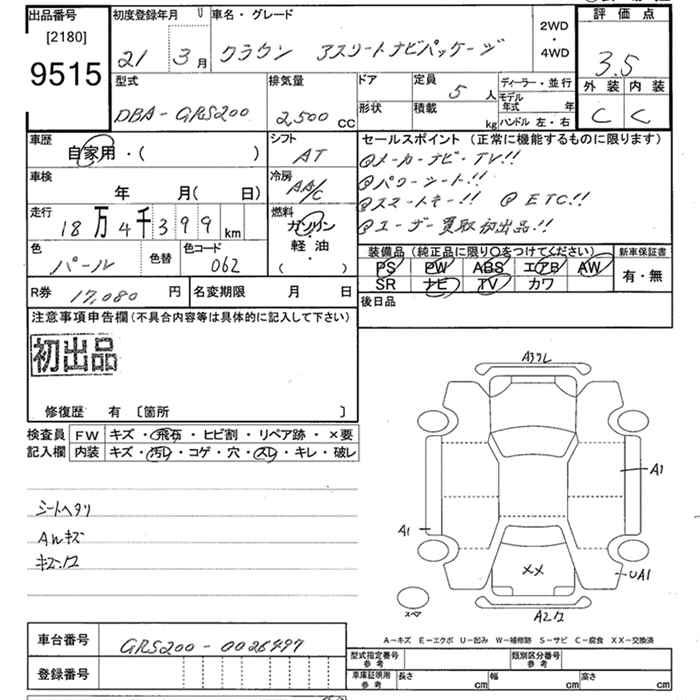 出品番号
[2180]
9515
初度登録年月 U
21 3月
車名・グレード
クラウン アスリートナビパッケージ
2WD
・
4WD
評価点
3.5
外装 内装
C C
型式
DBA-GRS200
排気量
2,500 CC
ドア
形状
定員
5 人
積載
kg
ディーラー・並行
モデル年式 年
ハンドル 左・右
車歴
自家用・( )
シフト
AT
車検
年 月( 日)
冷房
AA/C
走行
18万4千399km
燃料
ガソリン
軽油
( )
色
パール
色替
色コード
062
R券 17,080 円
名変期限 月 日
セールスポイント(正常に機能するものに限ります)
@メーカーナビ・TV!!
@パワーシート!!
@スマートキー!! @ETC!!
@ユーザー買取初出品!!
装備品(純正品に限り○をつけてください)
PS PW ABS エアB AW
SR ナビ TV カワ
新車保証書
有・無
後日品
注意事項申告欄(不具合内容等は具体的に記入して下さい)
初出品
修復歴 有 〔箇所 〕
検査員記入欄
FW キズ・飛石・ヒビ割・リペア跡・×要
内装 キズ・汚レ・コゲ・穴・スレ・キレ・破レ
シートヘタリ
AWキズ
キズ・ワ
A1
A1
UA1
XX
スペア
A-キズ E-エクボ U-凹み W-補修跡 S-サビ C-腐食 XX-交換済
車台番号
GRS200-0026497
登録番号
型式指定番号
参考
類別区分番号
参考
車庫証明用
参考
長さ cm
幅 cm
高さ cm